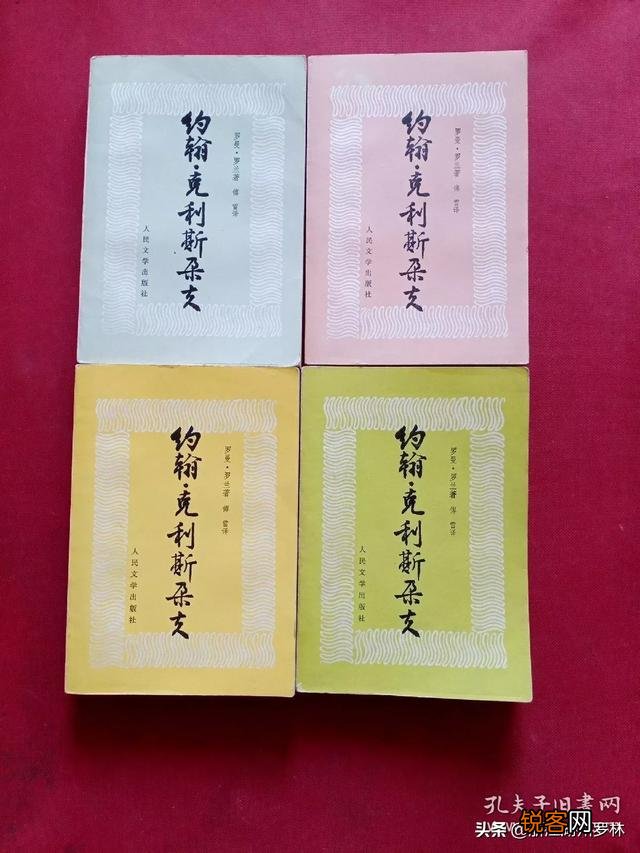 罗曼·罗兰著 傅雷译
约翰·克利斯朵夫
人民文学出版社
罗曼·罗兰著 傅雷译
约翰·克利斯朵夫
人民文学出版社
罗曼·罗兰著 傅雷译
约翰·克利斯朵夫
人民文学出版社
罗曼·罗兰著 傅雷译
约翰·克利斯朵夫
人民文学出版社
孔夫子旧书网
锐客网
头条 @ 罗林